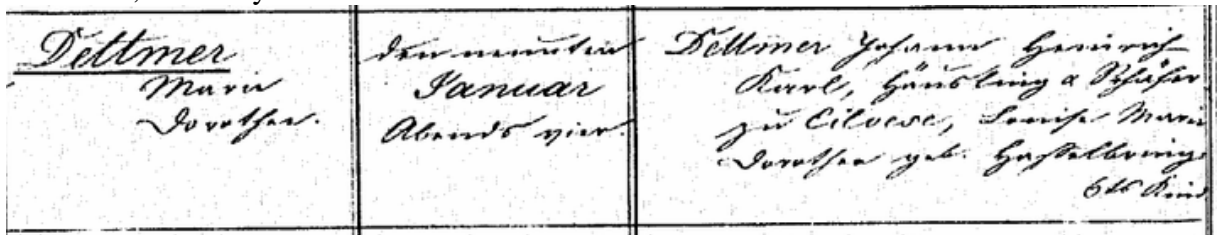 Dettmer
Marie
Dorothee.
den neunten
Januar
Abends vier.
Dettmer Johann Heinrich
Karl, Häusling & Schäfer
zu Eilvese, Louise Marie
Dorothee geb. Hasselbring
6tes Kind